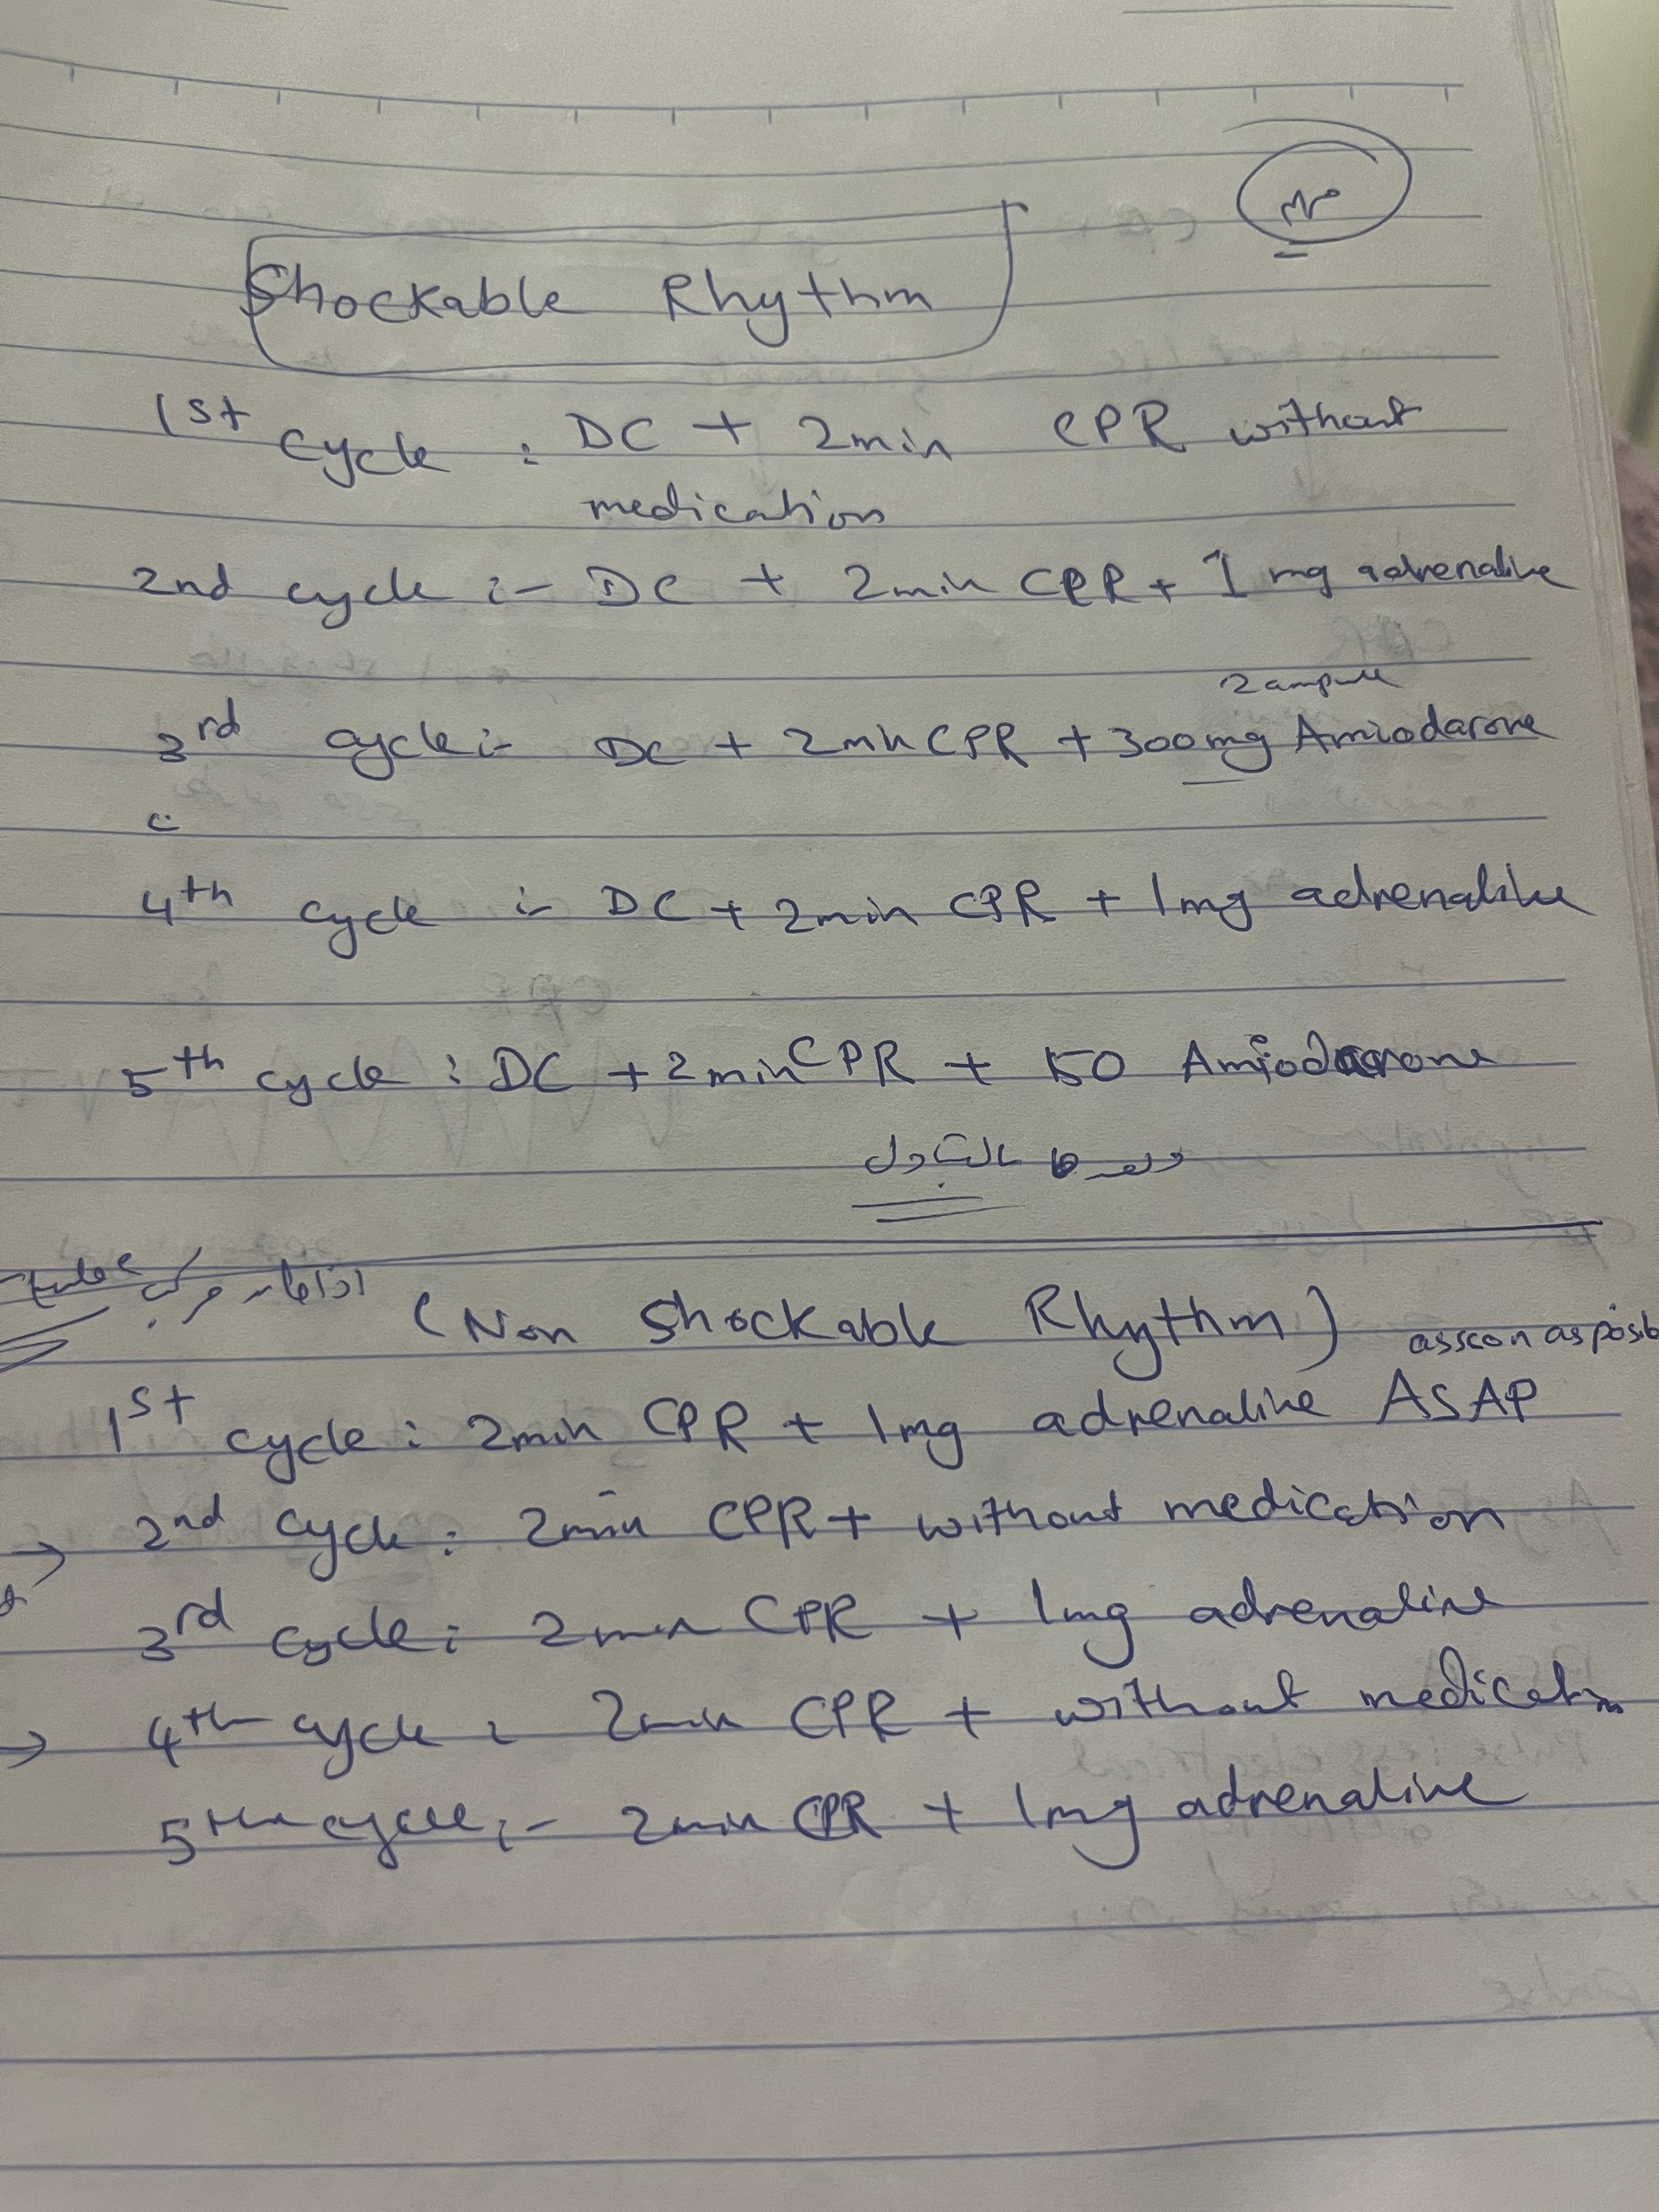 Shockable Rhythm
1st cycle : DC + 2min CPR without
medication
2nd cycle :- DC + 2min CPR + 1 mg adrenaline
2 ampule
3rd cycle :- DC + 2min CPR + 300mg Amiodarone
4th cycle :- DC + 2min CPR + 1mg adrenaline
5th cycle : DC + 2min CPR + 150 Amiodarone
وبعدها بالتبادل
اذا مركب tube
(Non Shockable Rhythm) assoon as posib
1st cycle : 2min CPR + 1mg adrenaline ASAP
→ 2nd cycle : 2min CPR + without medication
3rd cycle : 2min CPR + 1mg adrenaline
→ 4th cycle : 2min CPR + without medication
5th cycle :- 2min CPR + 1mg adrenaline